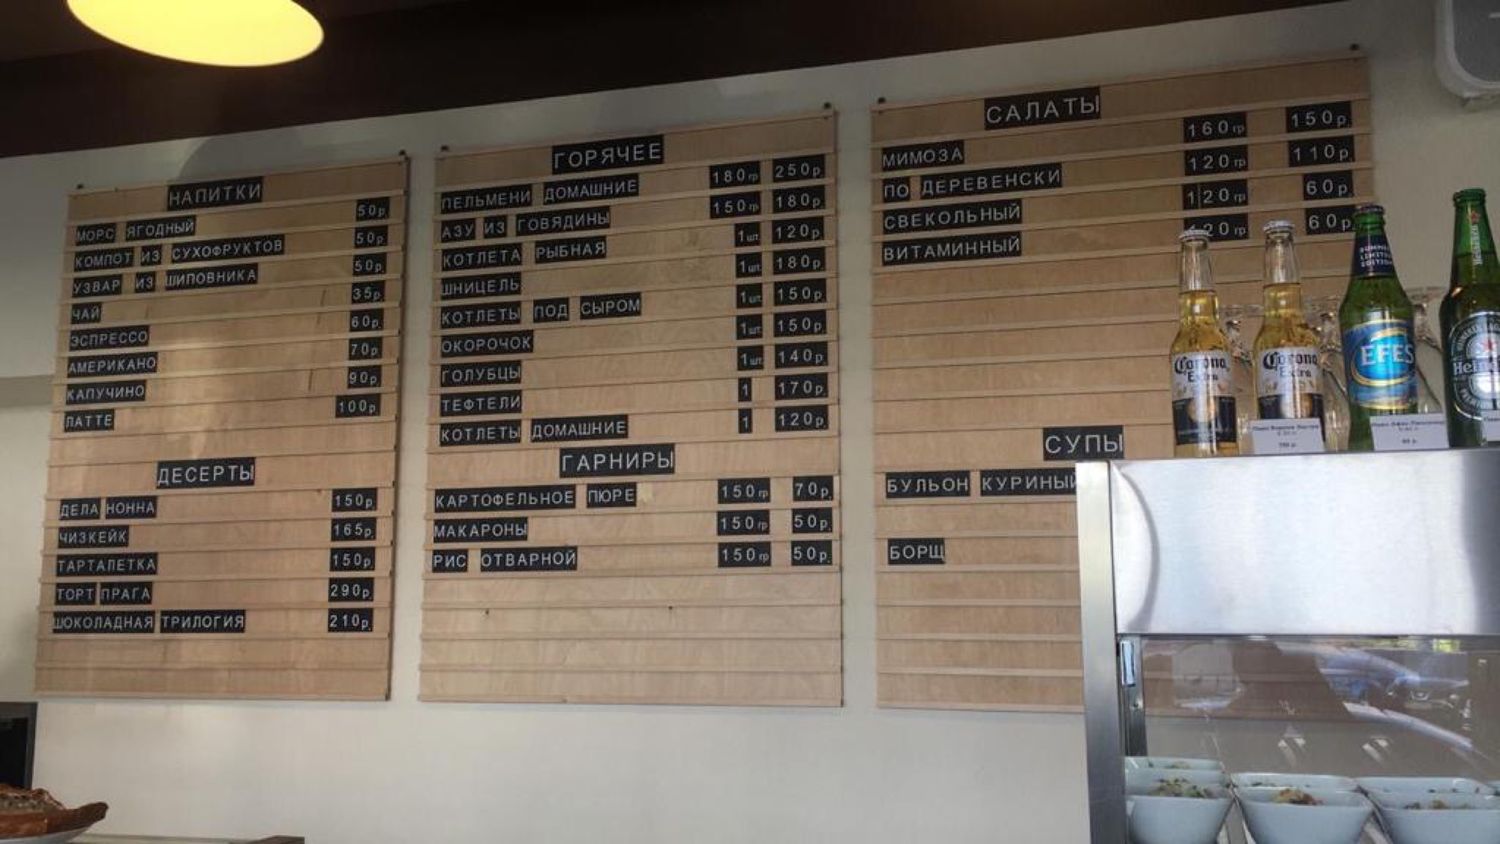 НАПИТКИ
МОРС ЯГОДНЫЙ 50р.
КОМПОТ ИЗ СУХОФРУКТОВ 50р.
УЗВАР ИЗ ШИПОВНИКА 50р.
ЧАЙ 35р.
ЭСПРЕССО 60р.
АМЕРИКАНО 70р.
КАПУЧИНО 90р.
ЛАТТЕ 100р.
ДЕСЕРТЫ
ДЕЛА НОННА 150р.
ЧИЗКЕЙК 165р.
ТАРТАЛЕТКА 150р.
ТОРТ ПРАГА 290р.
ШОКОЛАДНАЯ ТРИЛОГИЯ 210р.
ГОРЯЧЕЕ
ПЕЛЬМЕНИ ДОМАШНИЕ 180гр 250р.
АЗУ ИЗ ГОВЯДИНЫ 150гр 180р.
КОТЛЕТА РЫБНАЯ 1шт. 120р.
ШНИЦЕЛЬ 1шт. 180р.
КОТЛЕТЫ ПОД СЫРОМ 1шт. 150р.
ОКОРОЧОК 1шт. 150р.
ГОЛУБЦЫ 1шт. 140р.
ТЕФТЕЛИ 1 170р.
КОТЛЕТЫ ДОМАШНИЕ 1 120р.
ГАРНИРЫ
КАРТОФЕЛЬНОЕ ПЮРЕ 150гр 70р.
МАКАРОНЫ 150гр 50р.
РИС ОТВАРНОЙ 150гр 50р.
САЛАТЫ
МИМОЗА 160гр 150р
ПО ДЕРЕВЕНСКИ 120гр 110р
СВЕКОЛЬНЫЙ 120гр 60р.
ВИТАМИННЫЙ 120гр 60р
СУПЫ
БУЛЬОН КУРИНЫЙ
БОРЩ
Corona
Extra
Corona
Extra
EFES